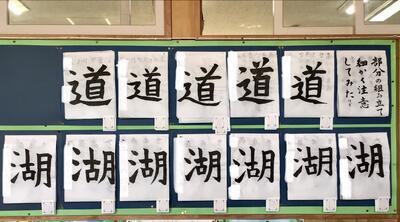 部分の組み立て
細かく注意
してみた!!
道 道 道 道 道
湖 湖 湖 湖 湖 湖 湖